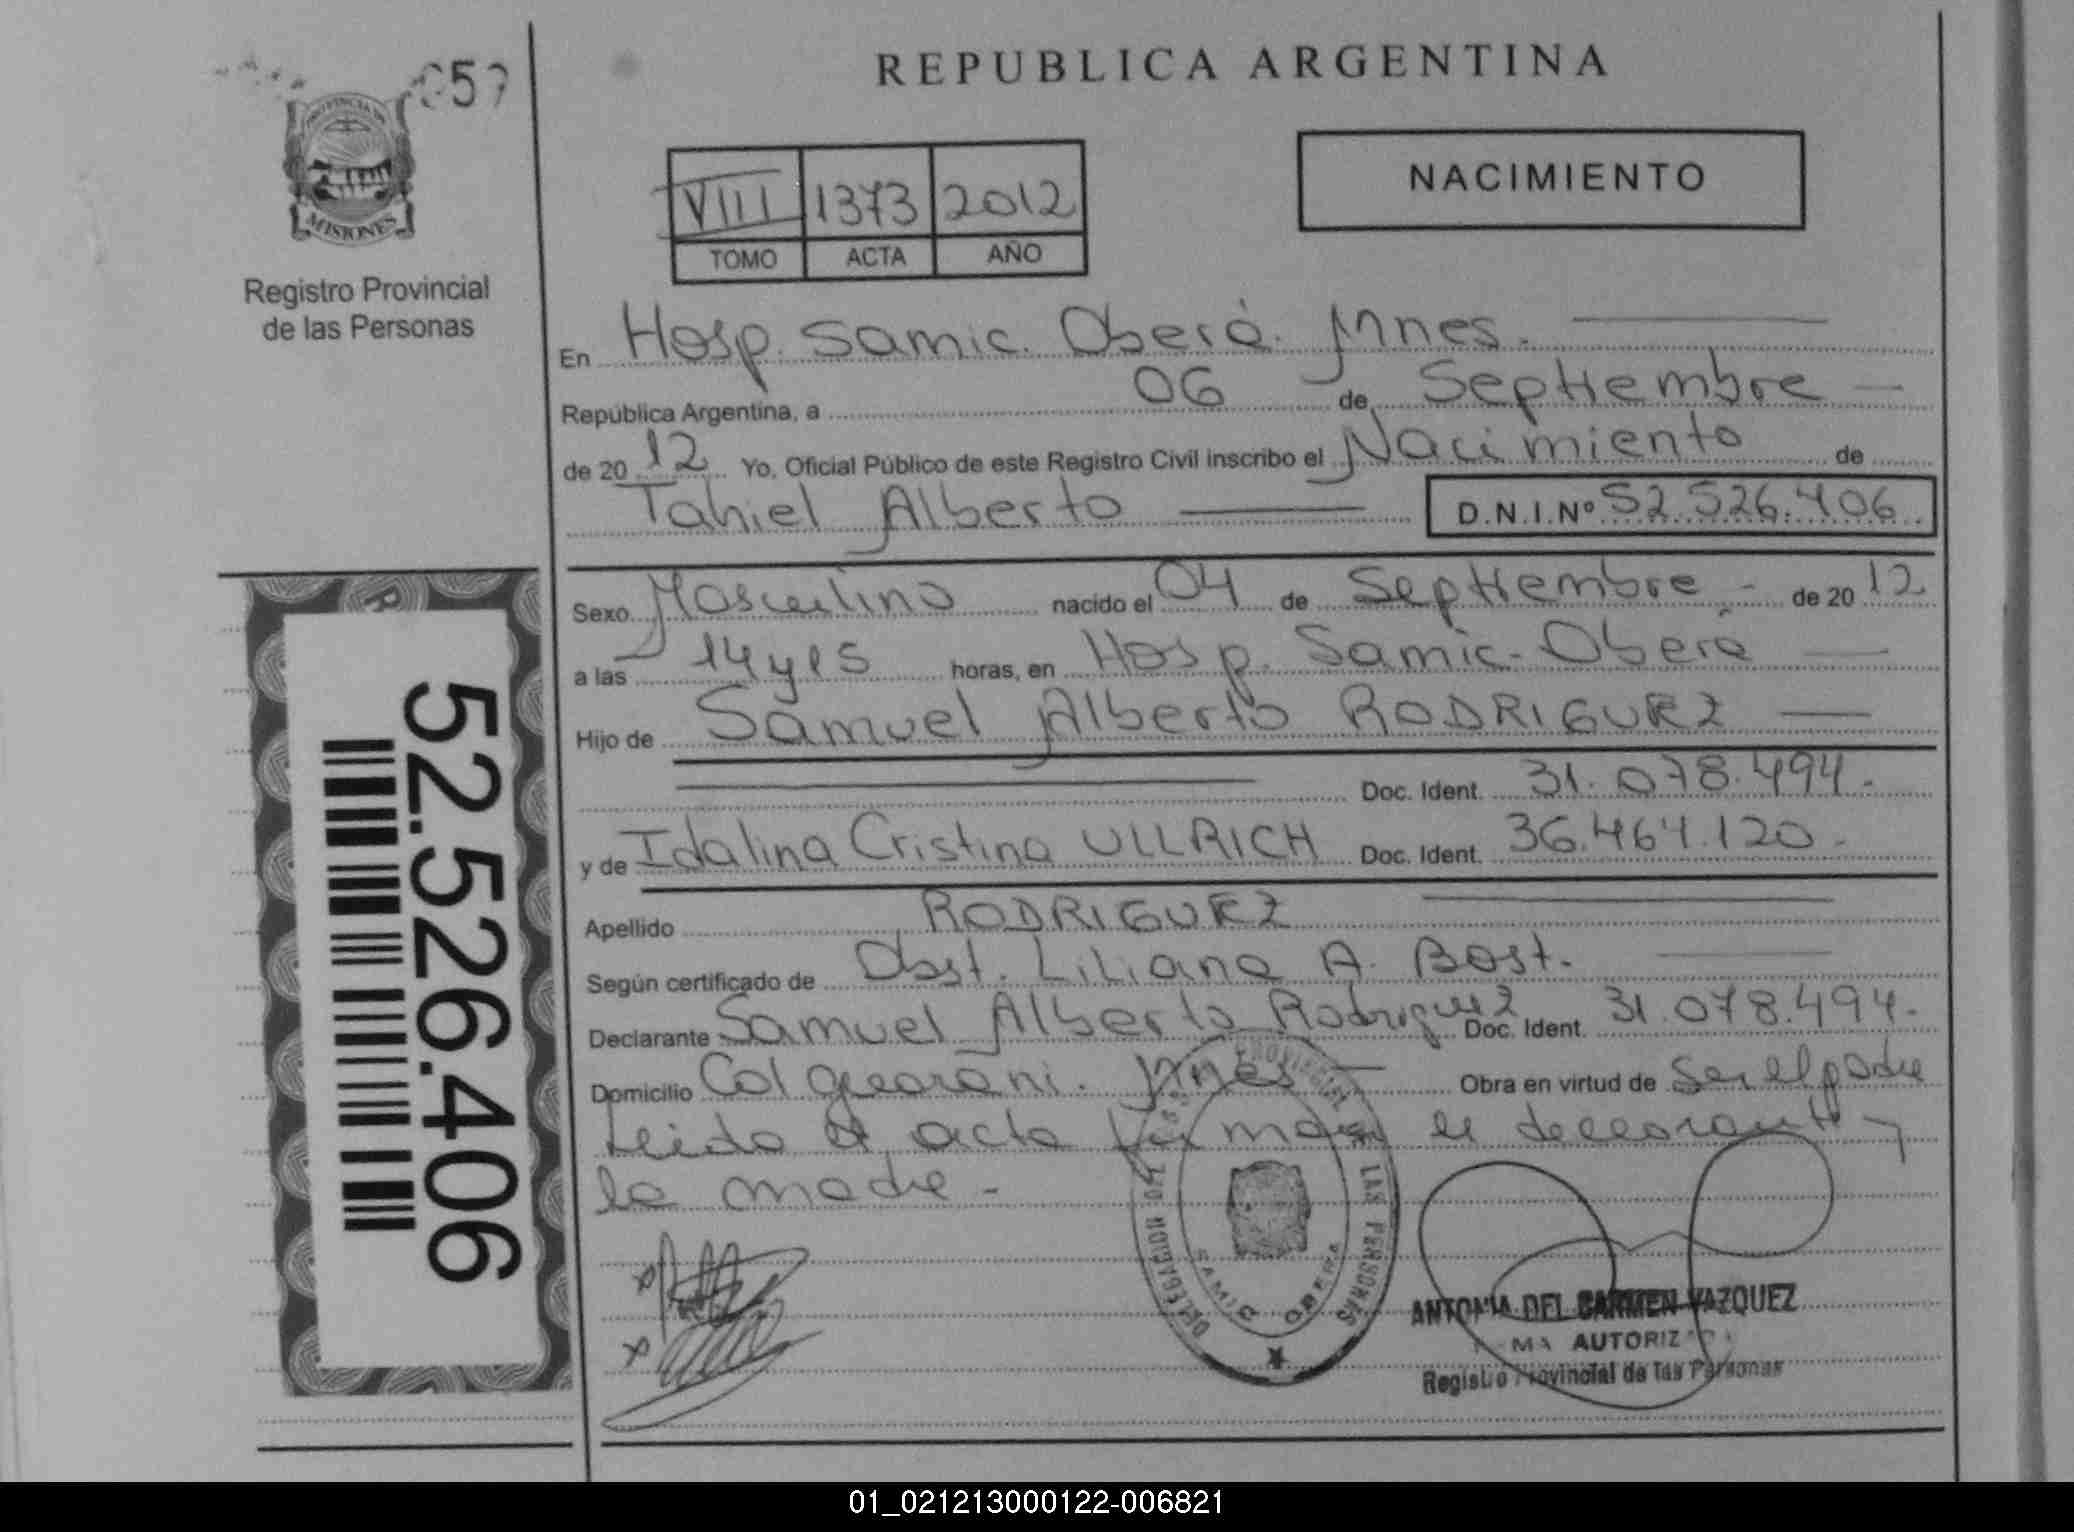 059
PROVINCIA DE
MISIONES
Registro Provincial
de las Personas
REPUBLICA ARGENTINA
NACIMIENTO
VIII 1373 2012
TOMO ACTA AÑO
En Hosp. Samic. Oberá. Mnes.
República Argentina, a 06 de Septiembre
de 20 12 Yo, Oficial Público de este Registro Civil inscribo el Nacimiento de
Tahiel Alberto D.N.I.Nº 52.526.406
Sexo Masculino nacido el 04 de Septiembre - de 20 12
a las 14 y 15 horas, en Hosp. Samic. Oberá
Hijo de Samuel Alberto RODRIGUEZ
Doc. Ident. 31.078.494.-
y de Idalina Cristina ULLRICH Doc. Ident. 36.464.120.-
Apellido RODRIGUEZ
Según certificado de Obst. Liliana A. Bost.
Declarante Samuel Alberto Rodriguez Doc. Ident. 31.078.494.-
Domicilio Col guarani. Mnes Obra en virtud de Ser el padre
Leida el acta firman el declarante y
la madre -
DELEGACION DEL REGISTRO PROVINCIAL DE LAS PERSONAS
SAMIC OBERA
ANTONIA DEL CARMEN VAZQUEZ
AUTORIZ
Registro Provincial de las Personas
52.526.406
01_021213000122-006821